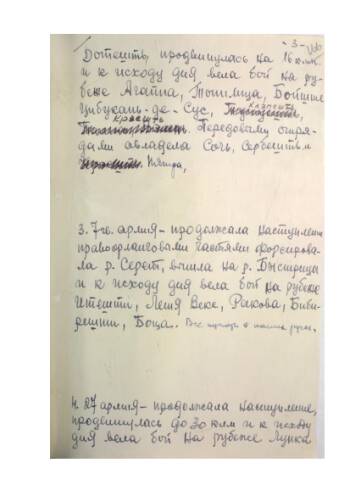 -3-
Дотешть, продвинулась на 16 клм.
и к исходу дня вела бой на ру-
беже Агапиа, Топлица,
Цибукань-де-Сус,
Передовыми отря-
дами овладела Сочь, Сербешть и
Пятра,
3. 7 гв. армия - продолжала наступление
правофланговыми частями форсирова-
ла р. Серет, вышла на р. Быстрицы
и к исходу дня вела бой на рубеже
Итешти, Леця Веке, Ракова,
Боща.. Все
4. 27 армия - продолжала наступление,
продвинулась до 30 клм и к исходу
дня вела бой на рубеже Лунка